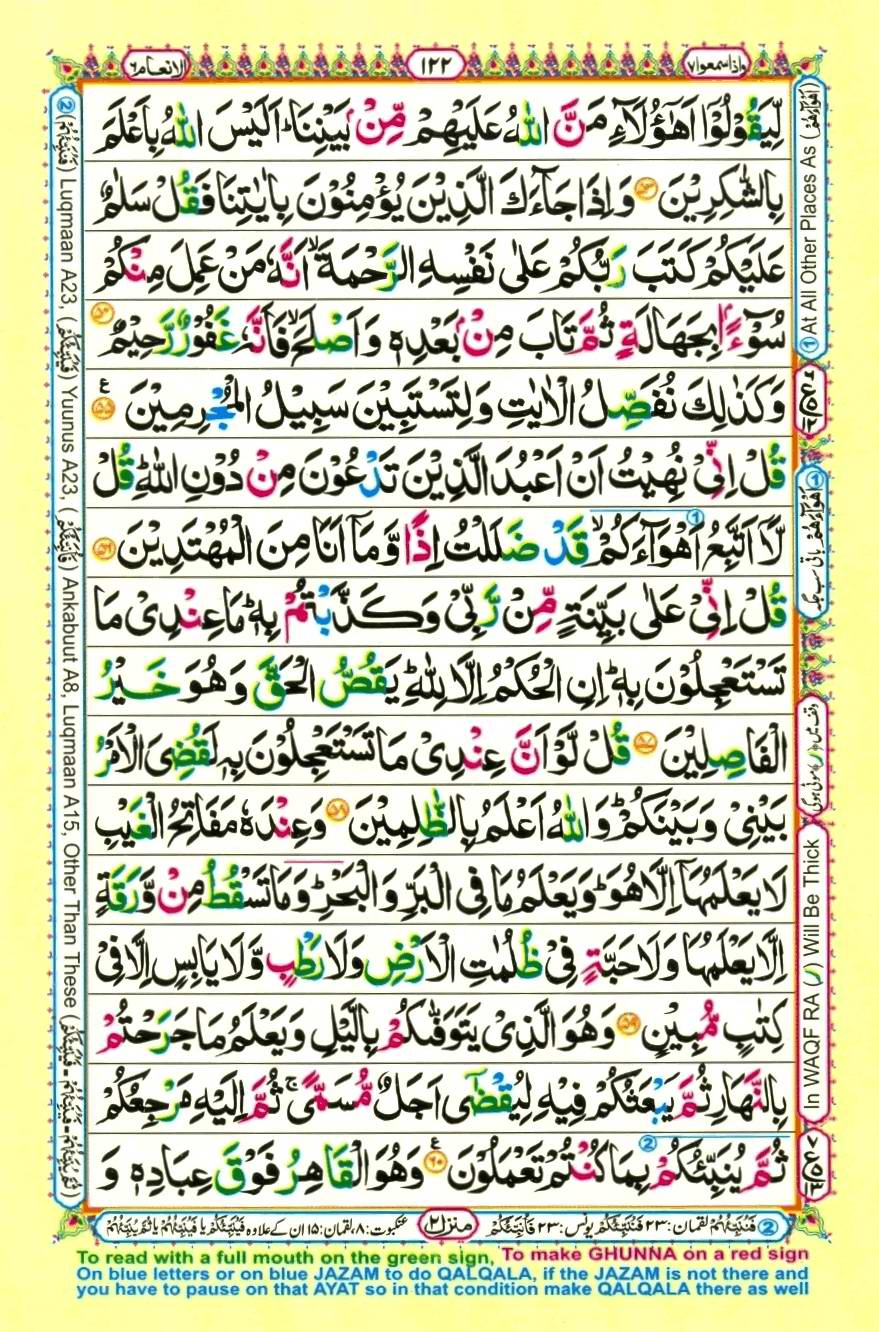 واذا سمعوا ۷ ۱۲۲ الانعام ۶
لِّيَقُوْلُوْۤا اَهٰۤؤُلَآءِ مَنَّ اللّٰهُ عَلَيْهِمْ مِّنْۢ بَيْنِنَا ؕ اَلَيْسَ اللّٰهُ بِاَعْلَمَ
بِالشّٰكِرِيْنَ ﴿۵۳﴾ وَاِذَا جَآءَكَ الَّذِيْنَ يُؤْمِنُوْنَ بِاٰيٰتِنَا فَقُلْ سَلٰمٌ
عَلَيْكُمْ كَتَبَ رَبُّكُمْ عَلٰى نَفْسِهِ الرَّحْمَةَ ۙ اَنَّهٗ مَنْ عَمِلَ مِنْكُمْ
سُوْٓءًۢا بِجَهَالَةٍ ثُمَّ تَابَ مِنْۢ بَعْدِهٖ وَاَصْلَحَ ۙ فَاَنَّهٗ غَفُوْرٌ رَّحِيْمٌ ﴿۵۴﴾
وَكَذٰلِكَ نُفَصِّلُ الْاٰيٰتِ وَلِتَسْتَبِيْنَ سَبِيْلُ الْمُجْرِمِيْنَ ﴿۵۵﴾ ع
قُلْ اِنِّىْ نُهِيْتُ اَنْ اَعْبُدَ الَّذِيْنَ تَدْعُوْنَ مِنْ دُوْنِ اللّٰهِ ؕ قُلْ
لَّاۤ اَتَّبِعُ اَهْوَآءَكُمْ ۙ قَدْ ضَلَلْتُ اِذًا وَّمَاۤ اَنَا مِنَ الْمُهْتَدِيْنَ ﴿۵۶﴾
قُلْ اِنِّىْ عَلٰى بَيِّنَةٍ مِّنْ رَّبِّىْ وَكَذَّبْتُمْ بِهٖ ؕ مَا عِنْدِىْ مَا
تَسْتَعْجِلُوْنَ بِهٖ ؕ اِنِ الْحُكْمُ اِلَّا لِلّٰهِ ؕ يَقُصُّ الْحَقَّ وَهُوَ خَيْرُ
الْفَاصِلِيْنَ ﴿۵۷﴾ قُلْ لَّوْ اَنَّ عِنْدِىْ مَا تَسْتَعْجِلُوْنَ بِهٖ لَقُضِىَ الْاَمْرُ
بَيْنِىْ وَبَيْنَكُمْ ؕ وَاللّٰهُ اَعْلَمُ بِالظّٰلِمِيْنَ ﴿۵۸﴾ وَعِنْدَهٗ مَفَاتِحُ الْغَيْبِ
لَا يَعْلَمُهَاۤ اِلَّا هُوَ ؕ وَيَعْلَمُ مَا فِى الْبَرِّ وَالْبَحْرِ ؕ وَمَا تَسْقُطُ مِنْ وَّرَقَةٍ
اِلَّا يَعْلَمُهَا وَلَا حَبَّةٍ فِىْ ظُلُمٰتِ الْاَرْضِ وَلَا رَطْبٍ وَّلَا يَابِسٍ اِلَّا فِىْ
كِتٰبٍ مُّبِيْنٍ ﴿۵۹﴾ وَهُوَ الَّذِىْ يَتَوَفّٰٮكُمْ بِالَّيْلِ وَيَعْلَمُ مَا جَرَحْتُمْ
بِالنَّهَارِ ثُمَّ يَبْعَثُكُمْ فِيْهِ لِيُقْضٰٓى اَجَلٌ مُّسَمًّى ۚ ثُمَّ اِلَيْهِ مَرْجِعُكُمْ
ثُمَّ يُنَبِّئُكُمْ بِمَا كُنْتُمْ تَعْمَلُوْنَ ﴿۶۰﴾ ع وَهُوَ الْقَاهِرُ فَوْقَ عِبَادِهٖ وَ
① At All Other Places As (اَهْوَآءَهُمْ)
① اَهْوَآءَهُمْ باقی سب جگہ
وقف میں (ر) موٹی ہوگی
In WAQF RA (ر) Will Be Thick
② (فَنُنَبِّئُهُمْ) Luqmaan A23, (فَنُنَبِّئُكُمْ) Yuunus A23, (فَاُنَبِّئُكُمْ) Ankabuut A8, Luqmaan A15, Other Than These (فَيُنَبِّئُكُمْ - فَيُنَبِّئُهُمْ - ثُمَّ يُنَبِّئُهُمْ)
② فَنُنَبِّئُهُمْ لقمان: ۲۳ فَنُنَبِّئُكُمْ یونس: ۲۳ فَاُنَبِّئُكُمْ منزل ۲ عنکبوت: ۸، لقمان: ۱۵ ان کے علاوہ فَيُنَبِّئُكُمْ یا فَيُنَبِّئُهُمْ یا ثُمَّ يُنَبِّئُهُمْ
To read with a full mouth on the green sign, To make GHUNNA on a red sign
On blue letters or on blue JAZAM to do QALQALA, if the JAZAM is not there and
you have to pause on that AYAT so in that condition make QALQALA there as well